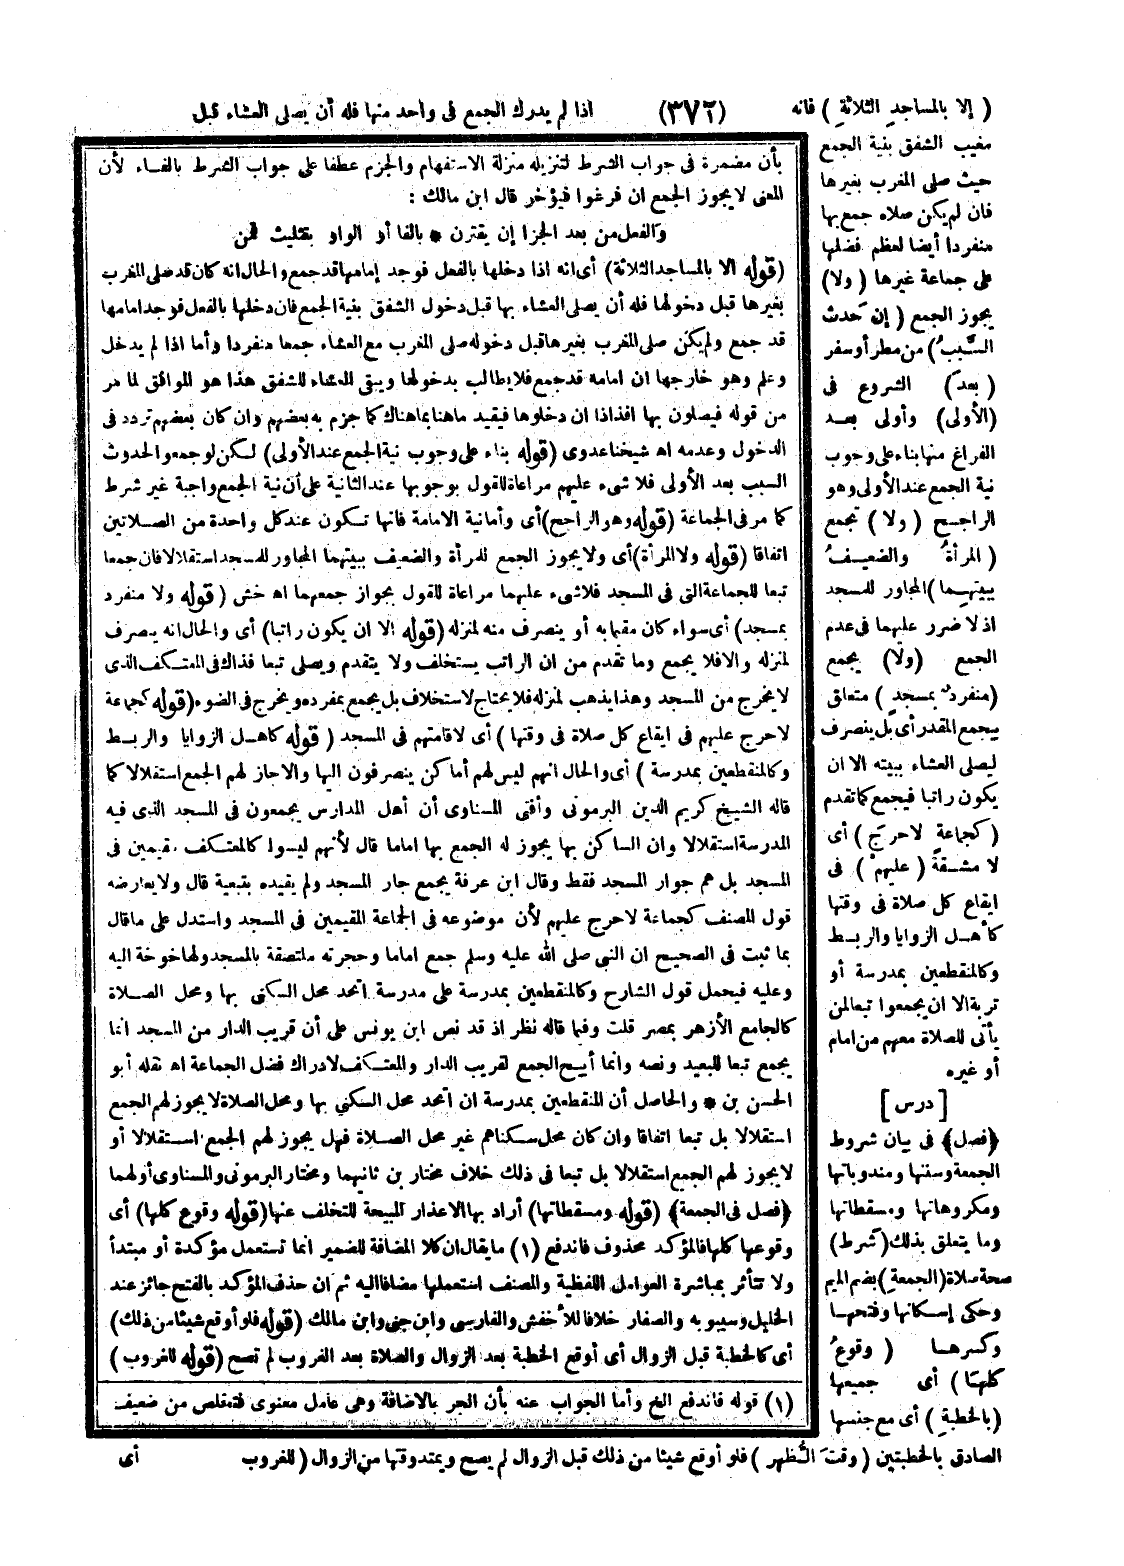 ( إلا بالمساجدِ الثلاثةِ ) فانه (٣٧٢) اذا لم يدرك الجمع فى واحد منها فله أن يصلى العشاء قبل
مغيب الشفق بنية الجمع
حيث صلى المغرب بغيرها
فان لم يكن صلاه جمع بها
منفردا أيضا لعظم فضلها
على جماعة غيرها ( ولا)
يجوز الجمع ( إن حَدث
السَّببُ) من مطر أو سفر
( بعدَ) الشروع فى
(الأولى) وأولى بعد
الفراغ منها بناء على وجوب
نية الجمع عند الأولى وهو
الراجح ( ولا ) تجمع
( المرأةُ والضعيفُ
ببيتهما) المجاور للمسجد
اذ لا ضرر عليهما فى عدم
الجمع (ولا) يجمع
(منفردٌ بمسجدٍ ) متعلق
بيجمع المقدر أى بل ينصرف
ليصلى العشاء ببيته الا ان
يكون راتبا فيجمع كما تقدم
( كجماعةٍ لا حرجَ ) أى
لا مشقةَ ( عليهمْ ) فى
ايقاع كل صلاة فى وقتها
كأهل الزوايا والربط
وكالمنقطعين بمدرسة أو
تربة الا ان يجمعوا تبعا لمن
يأتى للصلاة معهم من امام
أو غيره
[ درس ]
﴿فصل﴾ فى بيان شروط
الجمعة وسننها ومندوباتها
ومكروهاتها ومسقطاتها
وما يتعلق بذلك (شرط)
صحة صلاة (الجمعةِ) بضم الميم
وحكى إسكانها وفتحها
وكسرها ( وقوعُ
كلها ) أى جميعها
(بالخطبةِ ) أى مع جنسها
الصادق بالخطبتين ( وقتَ الظُّهر ) فلو أوقع شيئا من ذلك قبل الزوال لم يصح ويمتد وقتها من الزوال ( للغروب أى
بأن مضمرة فى جواب الشرط لتنزيله منزلة الاستفهام والجزم عطفا على جواب الشرط بالفاء لأن
المعنى لا يجوز الجمع ان فرغوا فيؤخر قال ابن مالك :
والفعل من بعد الجزا إن يقترن * بالفا أو الواو بتثليث قمن
(قوله الا بالمساجد الثلاثة) أى انه اذا دخلها بالفعل فوجد إمامها قد جمع والحال انه كان قد صلى المغرب
بغيرها قبل دخولها فله أن يصلى العشاء بها قبل دخول الشفق بنية الجمع فان دخلها بالفعل فوجد امامها
قد جمع ولم يكن صلى المغرب بغيرها قبل دخوله صلى المغرب مع العشاء جمعا منفردا وأما اذا لم يدخل
وعلم وهو خارجها ان امامه قد جمع فلا يطالب بدخولها ويبقى العشاء للشفق هذا هو الموافق لما مر
من قوله فيصلون بها افذاذا ان دخلوها فيقيد ما هنا بما هناك كما جزم به بعضهم وان كان بعضهم تردد فى
الدخول وعدمه اه شيخنا عدوى (قوله بناء على وجوب نية الجمع عند الأولى) لكن لو جمعوا لحدوث
السبب بعد الأولى فلا شىء عليهم مراعاة للقول بوجوبها عند الثانية على أن نية الجمع واجبة غير شرط
كما مر فى الجماعة (قوله وهو الراجح) أى وأما نية الامامة فانها تكون عند كل واحدة من الصلاتين
اتفاقا (قوله ولا المرأة) أى ولا يجوز الجمع للمرأة والضعيف ببيتهما المجاور للمسجد استقلالا فان جمعا
تبعا للجماعة التى فى المسجد فلا شىء عليهما مراعاة للقول بجواز جمعهما اه خش ( قوله ولا منفرد
بمسجد) أى سواء كان مقيما به أو ينصرف منه لمنزله (قوله الا ان يكون راتبا) أى والحال انه ينصرف
لمنزله والا فلا يجمع وما تقدم من ان الراتب يستخلف ولا يتقدم ويصلى تبعا فذاك فى المعتكف الذى
لا يخرج من المسجد وهذا يذهب لمنزله فلا يحتاج لاستخلاف بل يجمع بمفرده ويخرج فى الضوء (قوله كجماعة
لا حرج عليهم فى ايقاع كل صلاة فى وقتها ) أى لاقامتهم فى المسجد ( قوله كاهل الزوايا والربط
وكالمنقطعين بمدرسة ) أى والحال انهم ليس لهم أماكن ينصرفون اليها والا جاز لهم الجمع استقلالا كما
قاله الشيخ كريم الدين البرمونى وأفتى المسناوى أن أهل المدارس يجمعون فى المسجد الذى فيه
المدرسة استقلالا وان الساكن بها يجوز له الجمع بها اماما قال لأنهم ليسوا كالمعتكف مقيمين فى
المسجد بل هم جوار المسجد فقط وقال ابن عرفة يجمع جار المسجد ولم يقيده بتبعية قال ولا يعارضه
قول المصنف كجماعة لا حرج عليهم لأن موضوعه فى الجماعة المقيمين فى المسجد واستدل على ما قال
بما ثبت فى الصحيح ان النبى صلى الله عليه وسلم جمع اماما وحجرته ملتصقة بالمسجد ولها خوخة اليه
وعليه فيحمل قول الشارح وكالمنقطعين بمدرسة على مدرسة اتحد محل السكنى بها ومحل الصلاة
كالجامع الأزهر بمصر قلت وفيما قاله نظر اذ قد نص ابن يونس على أن قريب الدار من المسجد انما
يجمع تبعا للبعيد ونصه وانما أبيح الجمع لقريب الدار والمعتكف لادراك فضل الجماعة اه نقله أبو
الحسن بن * والحاصل أن المنقطعين بمدرسة ان اتحد محل السكنى بها ومحل الصلاة لا يجوز لهم الجمع
استقلالا بل تبعا اتفاقا وان كان محل سكناهم غير محل الصلاة فهل يجوز لهم الجمع استقلالا أو
لا يجوز لهم الجمع استقلالا بل تبعا فى ذلك خلاف مختار بن ثانيهما ومختار البرمونى والمسناوى أولهما
﴿فصل فى الجمعة﴾ (قوله ومسقطاتها) أراد بها الاعذار المبيحة للتخلف عنها (قوله وقوع كلها) أى
وقوعها كلها فالمؤكد محذوف فاندفع (١) ما يقال ان كلا المضافة للضمير انما تستعمل مؤكدة أو مبتدأ
ولا تتأثر بمباشرة العوامل اللفظية والمصنف استعملها مضافا اليه ثم ان حذف المؤكد بالفتح جائز عند
الخليل وسيبويه والصفار خلافا للأخفش والفارسى وابن جنى وابن مالك (قوله فلو أوقع شيئا من ذلك)
أى كالخطبة قبل الزوال أى أوقع الخطبة بعد الزوال والصلاة بعد الغروب لم تصح (قوله للغروب )
(١) قوله فاندفع الخ وأما الجواب عنه بأن الجر بالاضافة وهى عامل معنوى فتخلص من ضعيف